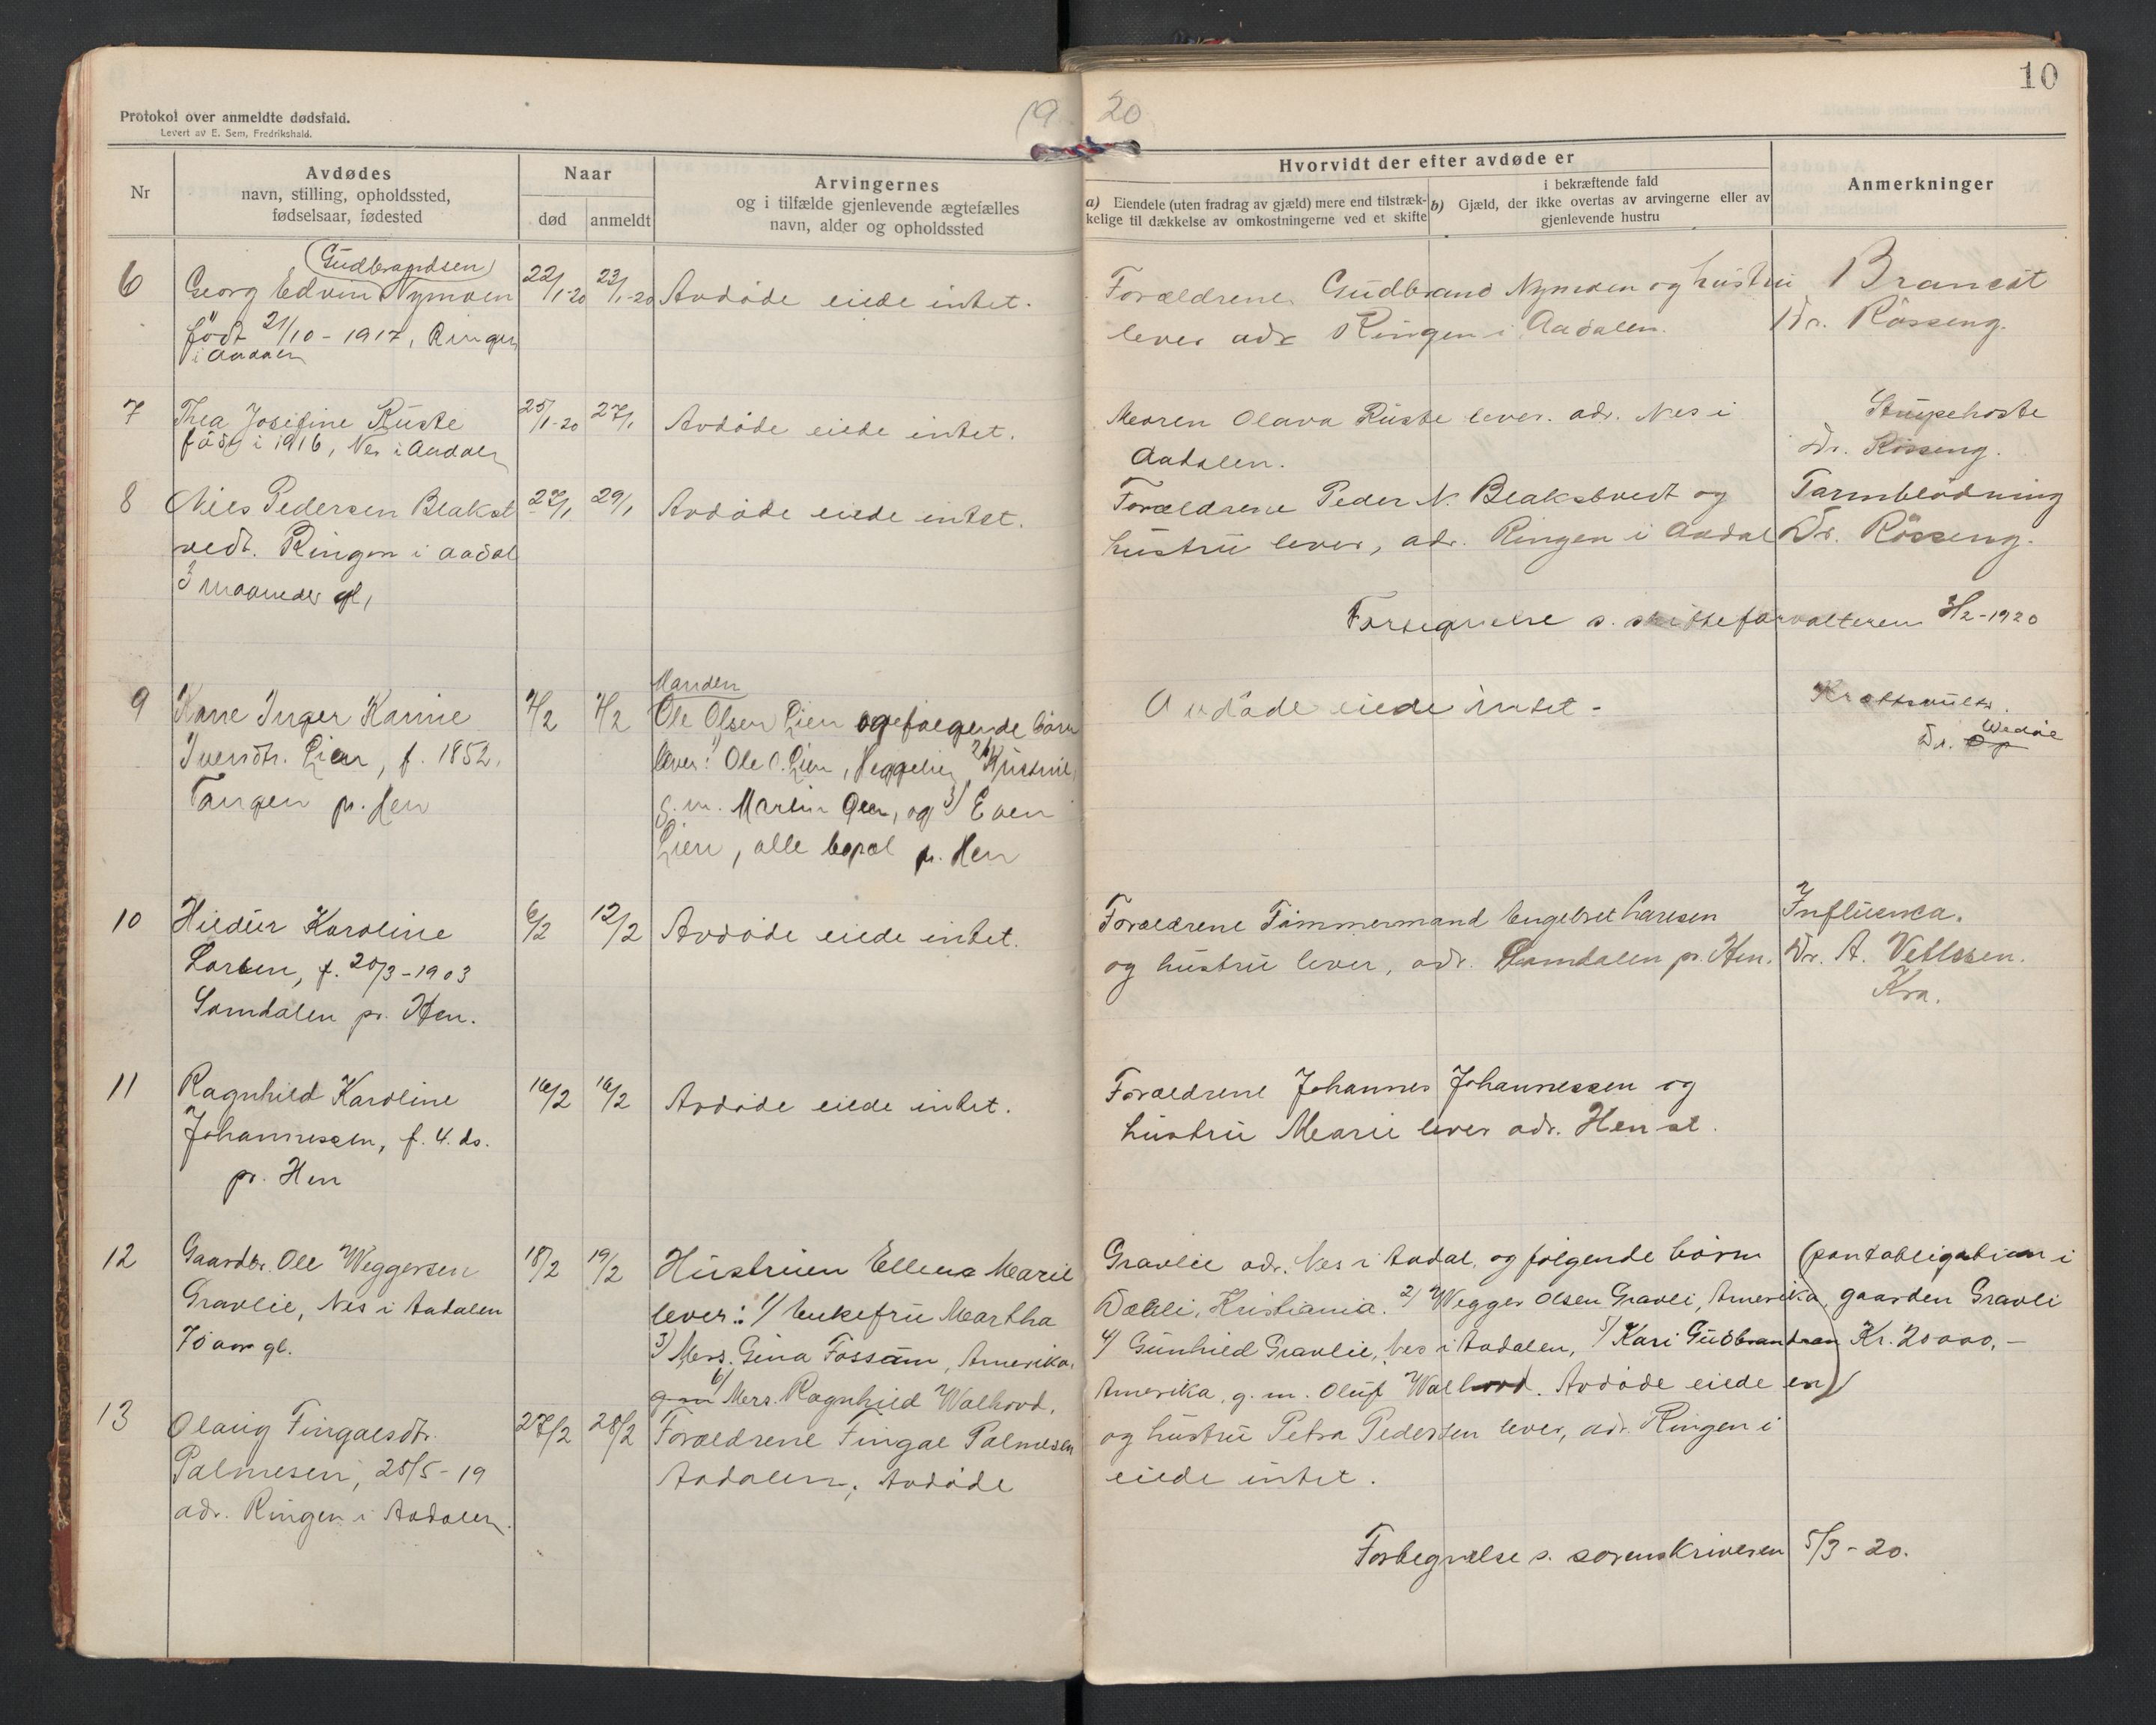 10
19 20
Protokol over anmeldte dødsfald.
Levert av E. Sem, Fredrikshald.
Nr
Avdødes
navn, stilling, opholdssted,
fødselsaar, fødested
Naar
død
anmeldt
Arvingernes
og i tilfælde gjenlevende ægtefælles
navn, alder og opholdssted
Hvorvidt der efter avdøde er
a) Eiendele (uten fradrag av gjæld) mere end tilstræk-
kelige til dækkelse av omkostningerne ved et skifte
i bekræftende fald
b) Gjæld, der ikke overtas av arvingerne eller av
gjenlevende hustru
Anmerkninger
6
Gudbrandsen
Georg Edvin Nymoen
født 21/10 - 1917, Ringen
i Aadalen
22/1-20
23/1-20
Avdøde eiede intet.
Forældrene Gudbrand Nymoen og hustru
lever adr Ringen i Aadalen.
Brancat
Dr. Røsseng.
7
Thea Josefine Ruste
født i 1916, Nes i Aadalen
25/1-20
27/1
Avdøde eiede intet.
Moren Olava Ruste lever. adr. Nes i
Aadalen.
Strupehoste
Dr. Røsseng.
8
Niels Pedersen Blakst
vedt. Ringen i Aadal
3 maaneder gl,
29/1
Avdøde eiede intet.
Forældrene Peder N. Blakstvedt og
hustru lever, adr. Ringen i Aadal
Tarmblødning
Dr. Røsseng.
Fortegnelse s. skifteforvalteren 3/2-1920
9
Kone Inger Karine
Iversdtr. Lien, f. 1852.
Tangen pr. Hen
4/2
4/2
Manden
Ole Olsen Lien og følgende børn
lever: 1) Ole O. Lien, Heggelien, 2)
g.m. Martin Oen, og 3) Even
Lien, alle bopæl pr. Hen
Avdøde eiede intet -
Dr. Wedøe
10
Hildur Karoline
Larsen, f. 20/3-1903
Samdalen pr. Hen.
6/2
12/2
Avdøde eiede intet.
Forældrene Tømmermand Engebret Larsen
og hustru lever, adr. Samdalen pr. Hen.
Influenca.
Dr. A. Vetlesen.
Kra.
11
Ragnhild Karoline
Johannessen, f. 4. ds.
pr. Hen
16/2
16/2
Avdøde eiede intet.
Forældrene Johannes Johannessen og
hustru Marie lever adr. Hen st.
12
Gaardbr. Ole Weggersen
Gravlie, Nes i Aadalen
75 aar gl.
18/2
19/2
Hustruen Ellen Marie
lever: 1) Enkefru Martha
3) Mrs. Gina Fossum, Amerika.
6) Mers. Ragnhild Walhovd.
Gravlie adr. Nes i Aadal, og følgende børn
Dæhli, Kristiania. 2) Wegger Olsen Gravli, Amerika,
4) Gunhild Gravlie, Nes i Aadalen, 5) Kari Gudbrandsen
Amerika, g.m. Oluf Walhovd. Avdøde eiede en
(pantobligation i
gaarden Gravli
Kr. 20000,-
13
Olaug Fingalsdtr.
Palmesen, 25/5-19
adr. Ringen i Aadalen.
27/2
28/2
Forældrene Fingal Palmesen
Aadalen, Avdøde
og hustru Petra Pedersen lever, adr. Ringen i
eiede intet.
Fortegnelse s. sorenskriveren 5/3-20.